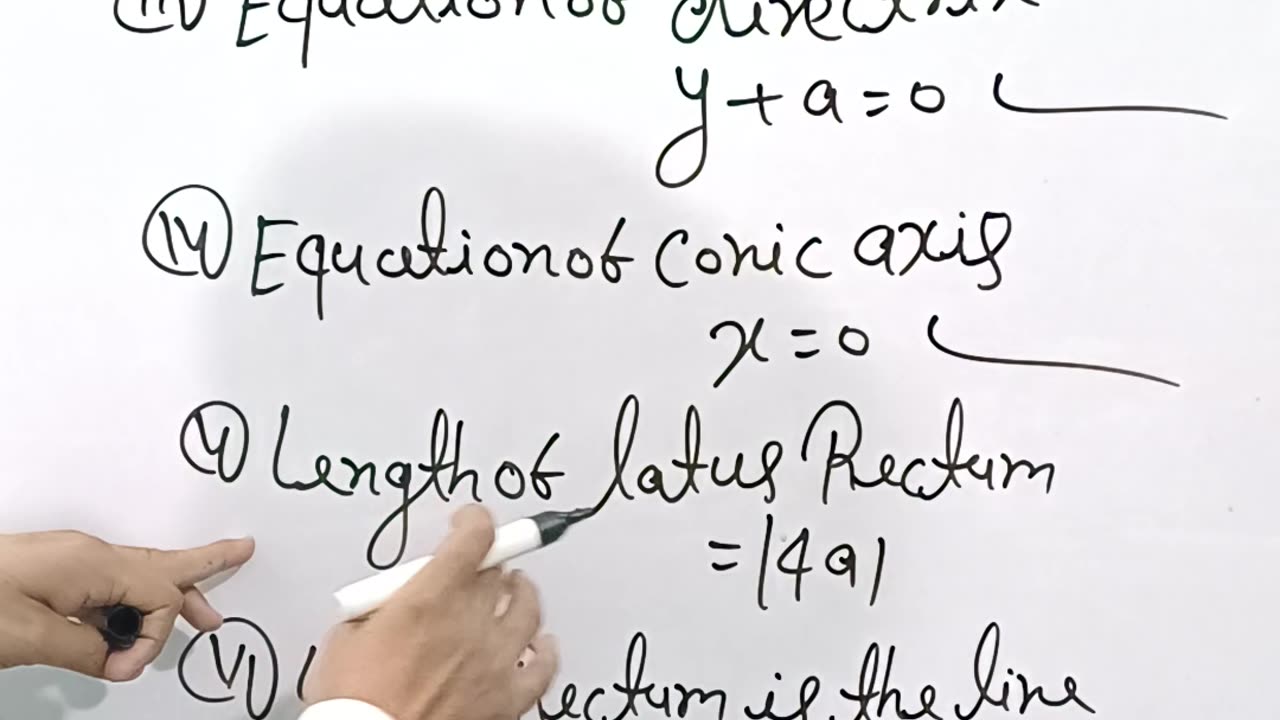 Equation of directrix
y + a = 0
(iv) Equation of conic axis
x = 0
(v) Length of latus Rectum
= |4a|
(vi) rectum is the line